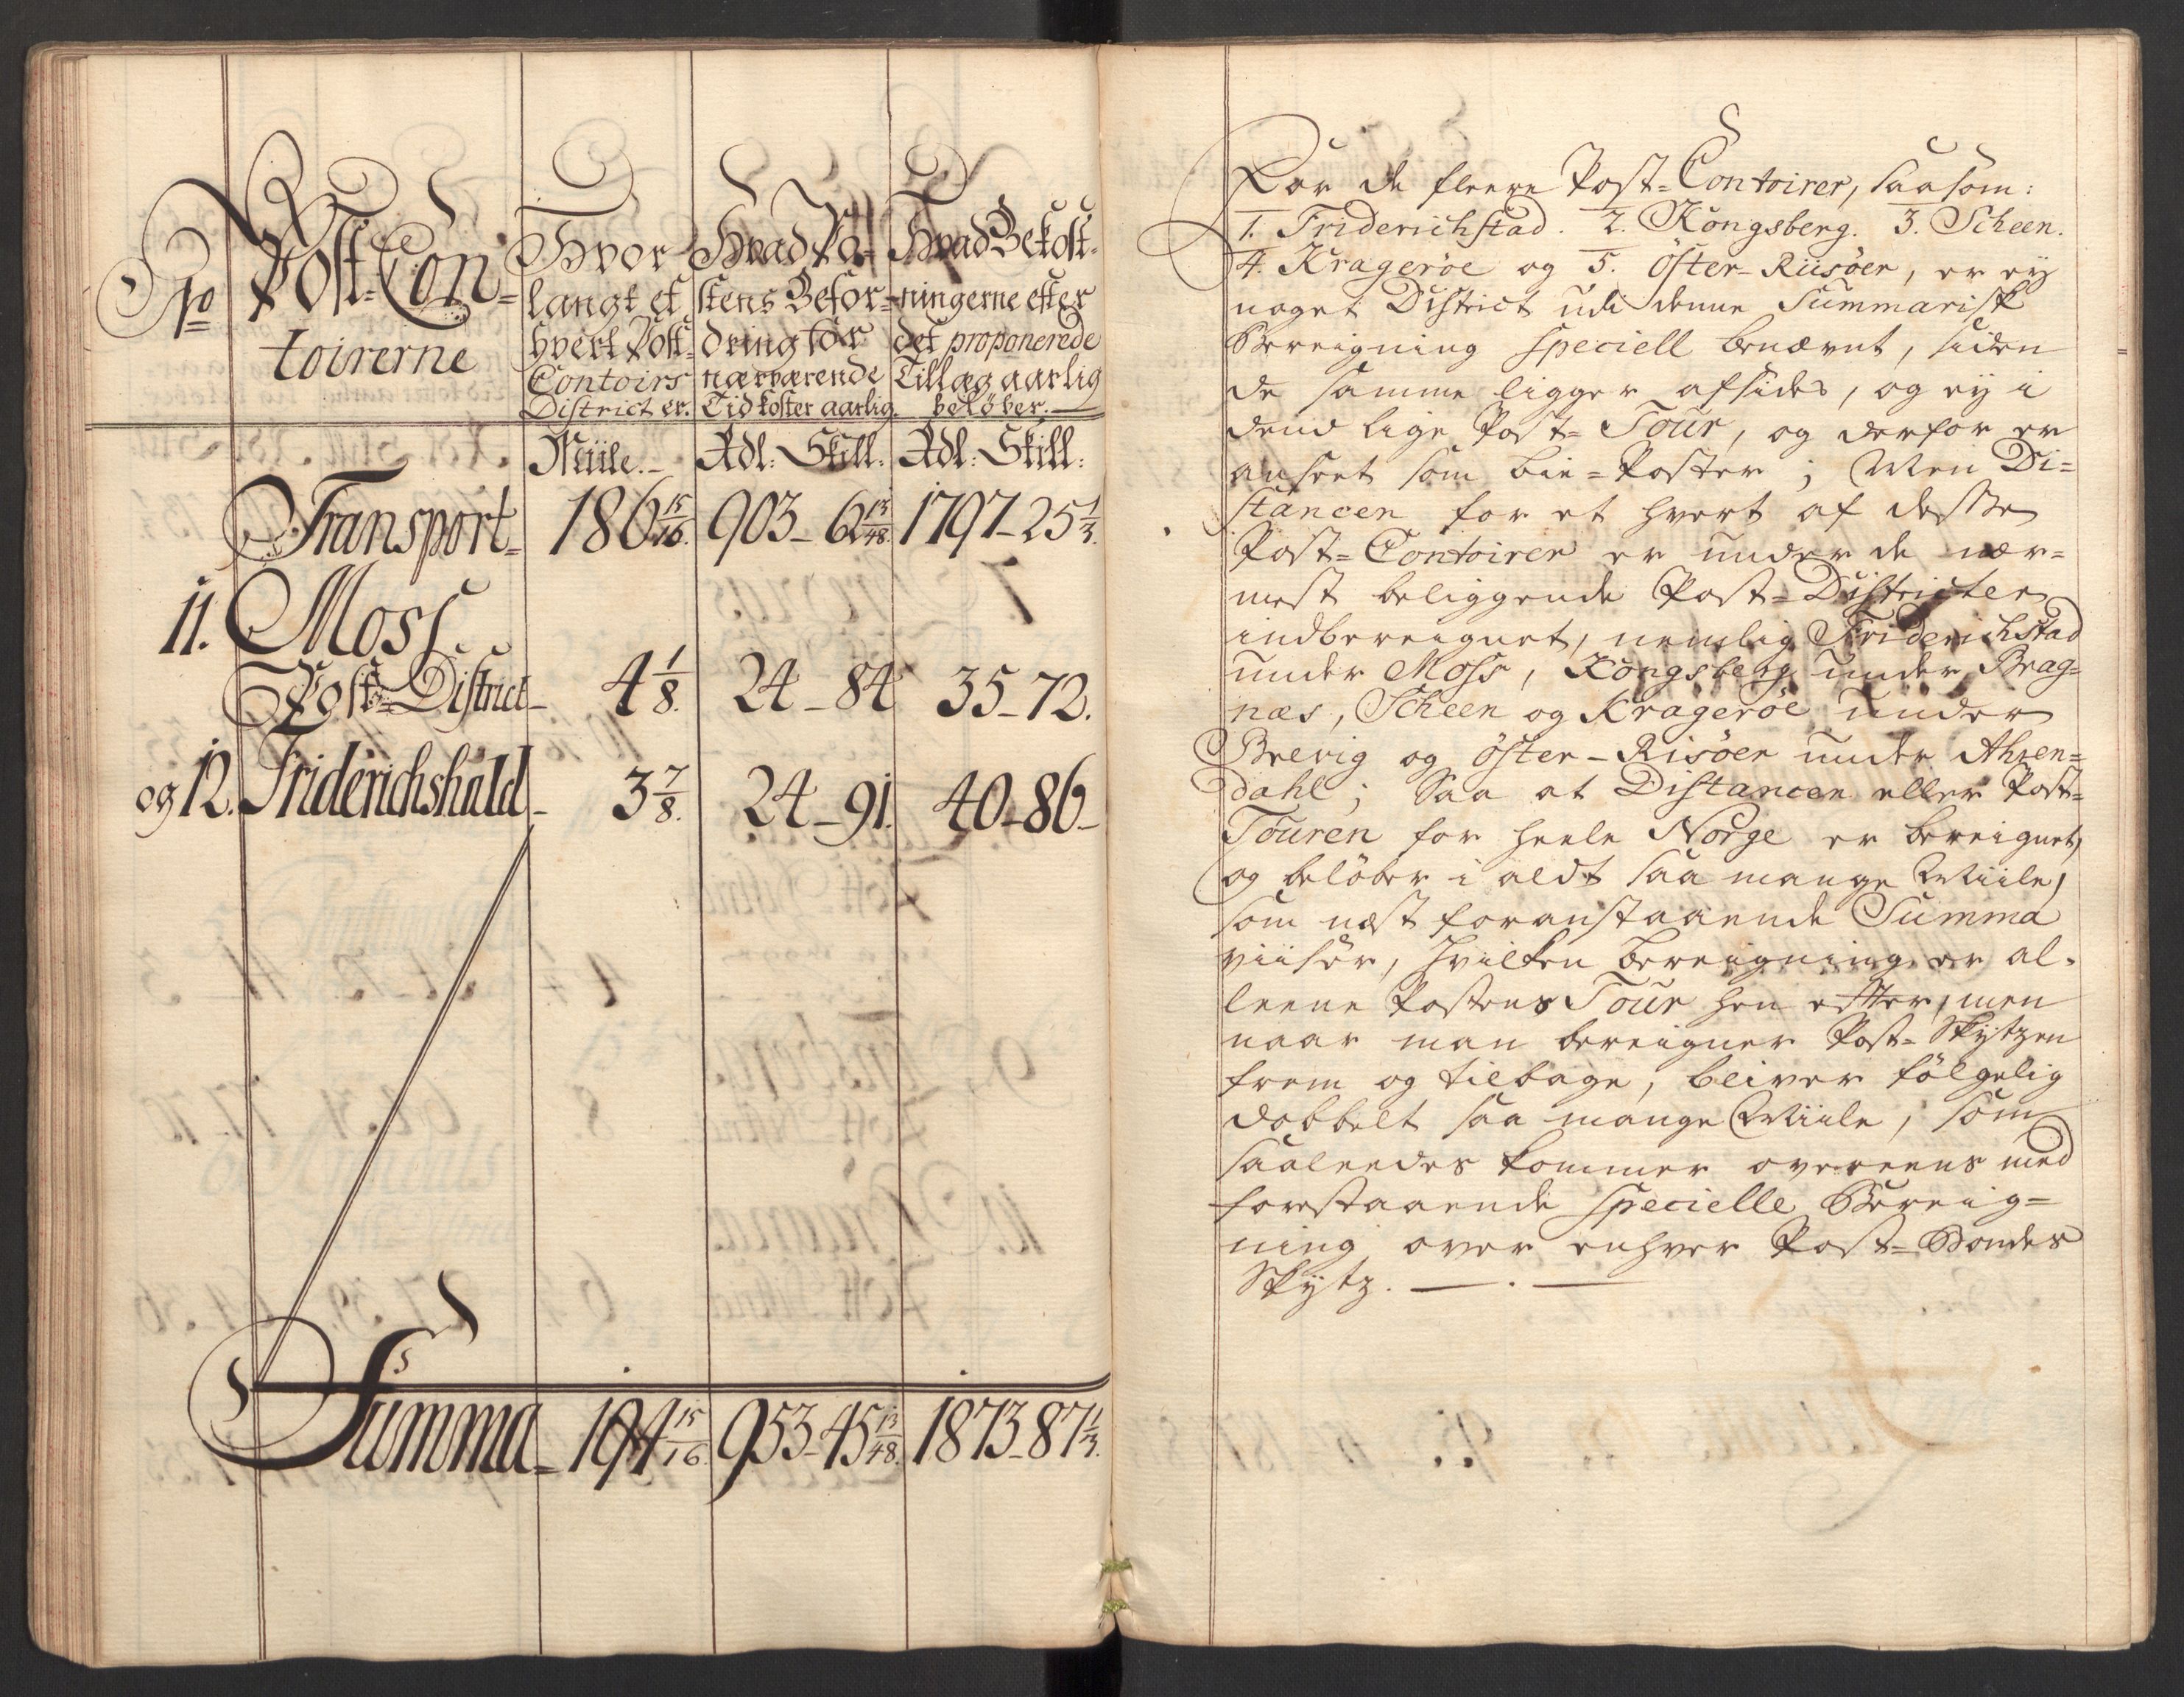 No
Post-Con-
toirerne
Hvor
langt et
hvert Post-
Contoirs
District er.
Hvad Po-
stens Befor-
dring for
nærværende
Tid koster aarlig.
Hvad Bekost-
ningerne efter
det proponerede
Tillæg aarlig
beløber.
Miile. Rdl: Skill: Rdl: Skill:
Transport 186 15/16. 903-6 13/48. 1797-25 1/3.
11. Moss
Post-District 4 1/8. 24-84 35-72.
og 12. Friderichshald 3 7/8. 24-91. 40-86
Summa 194 15/16. 953-45 13/48. 1873-87 1/3.
For de fleere Post-Contoirer, saasom:
1. Friderichstad. 2. Kongsberg. 3. Scheen.
4. Kragerøe og 5. Øster-Riisøer, er ey
noget District udi denne Summarisk
Bereigning speciell benævnt, siden
de samme ligger afsides, og ey i
dend lige Post-Tour, og derfor er
anseet som bie-Poster; Men Di-
stancen for et hvert af desse
Post-Contoirer er under de nær-
mest beliggende Post-Districter
indbereignet, nemlig Friderichstad
under Moss, Kongsberg under Brag-
næs, Scheen og Kragerøe under
Brevig og Øster-Risøer under Ahren-
dahl; Saa at Distancen eller Post-
Touren for heele Norge er bereignet,
og beløber i aldt saa mange Miile,
som næst foranstaaende Summa
viiser, hvilken bereigning er al-
leene Postens Tour hen efter, men
naar man bereigner Post-Skytzen
frem og tilbage, bliver følgelig
dobbelt saa mange Miile, som
saaleedes kommer overeens med
forestaaende specielle Bereig-
ning over enhver Post-Bondes
Skytz.